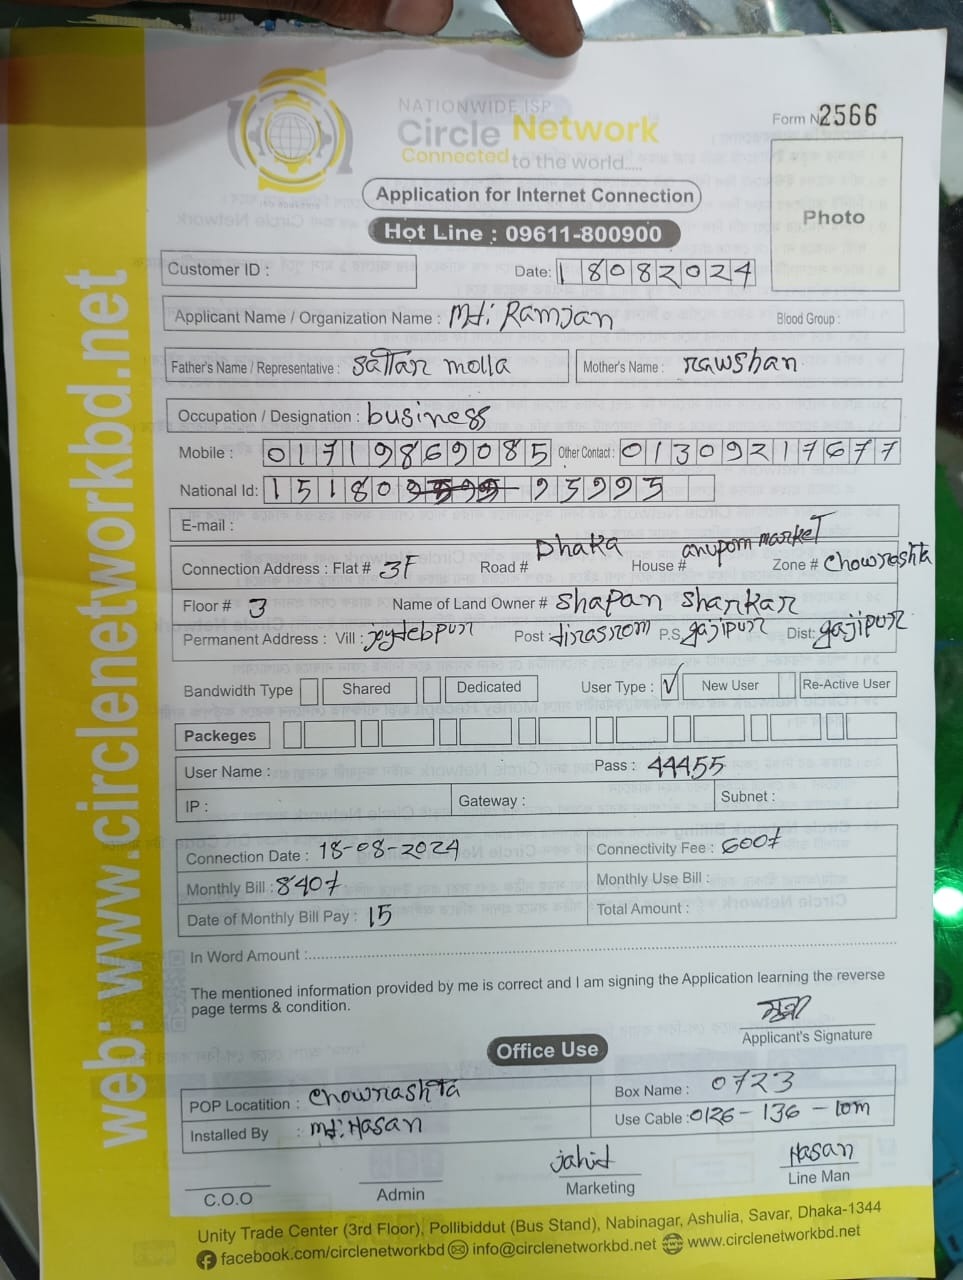 NATIONWIDE ISP
Circle Network
Connected to the world.....
Form N 2566
Application for Internet Connection
Photo
Hot Line : 09611-800900
Customer ID :
Date: 18082024
Applicant Name / Organization Name : Md: Ramjan
Blood Group :
Father's Name / Representative : sattar molla
Mother's Name : rawshan
Occupation / Designation : business
Mobile : 01719869085 Other Contact : 01309217677
National Id: 151803 95995
E-mail :
Connection Address : Flat # 3F Road # Dhaka House # anupom market Zone # Chowrashta
Floor # 3 Name of Land Owner # Shapan Sharkar
Permanent Address : Vill : joydebpur Post : P.S gajipur Dist: gajipur
Bandwidth Type Shared Dedicated User Type : ✓ New User Re-Active User
Packeges
User Name : Pass : 44455
IP : Gateway : Subnet :
Connection Date : 18-08-2024 Connectivity Fee : 600t
Monthly Bill : 840t Monthly Use Bill :
Date of Monthly Bill Pay : 15 Total Amount :
In Word Amount :
The mentioned information provided by me is correct and I am signing the Application learning the reverse
page terms & condition.
Applicant's Signature
Office Use
POP Locatition : Chowrashta Box Name : 0723
Installed By : Md: Hasan Use Cable : 0126-136-10m
C.O.O Admin jahid Marketing Hasan Line Man
Unity Trade Center (3rd Floor), Pollibiddut (Bus Stand), Nabinagar, Ashulia, Savar, Dhaka-1344
facebook.com/circlenetworkbd info@circlenetworkbd.net www.circlenetworkbd.net
web: www.circlenetworkbd.net